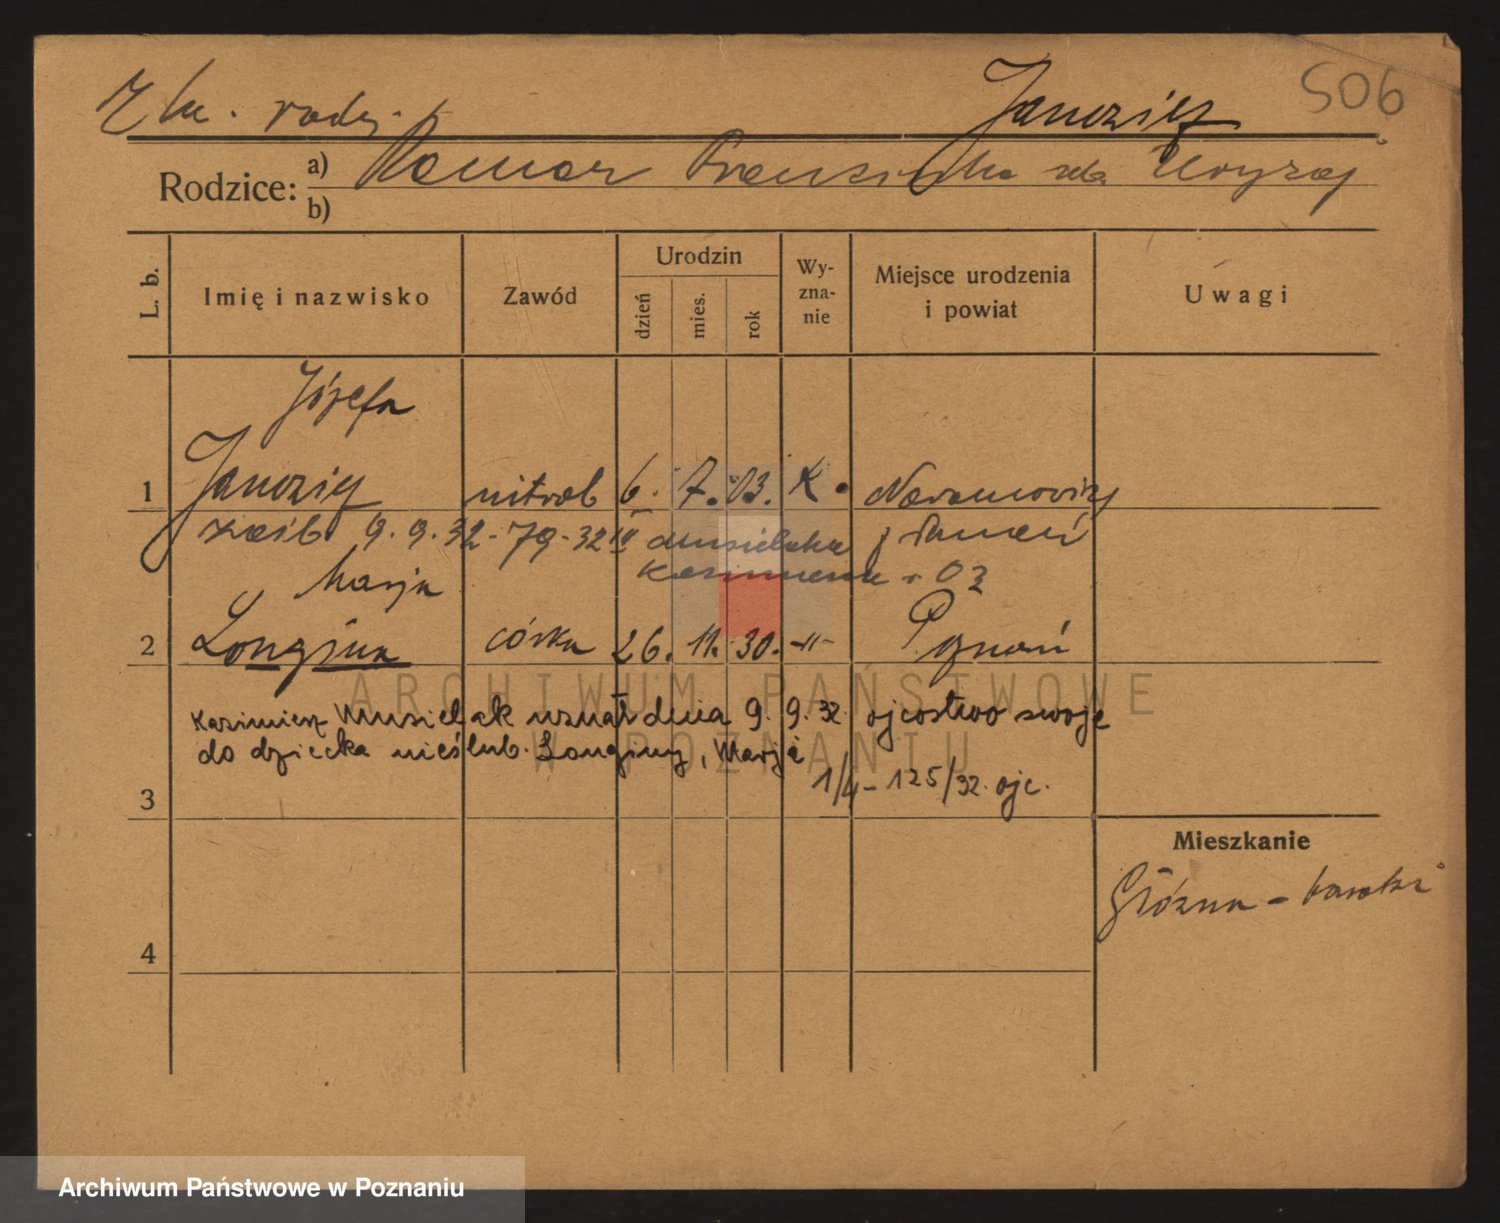 506
Janozię
Rodzice: a) Roman Franciszka
b)
L. b.
Imię i nazwisko
Zawód
Urodzin
dzień
mies.
rok
Wy-
zna-
nie
Miejsce urodzenia
i powiat
Uwagi
Józefa
1
6. 7. 03. K.
zaśb. 9. 9. 32 - 79 - 32 III Musielaka
Kazimierza r. 03
Marja
2 Longina córka 26. 11. 30. -"- Poznań
Kazimierz Musielak uznał dnia 9. 9. 32. ojcostwo swoje
do dziecka nieślub. Longiny, Marji
1/4 - 125/32. ojc.
3
Mieszkanie
Główna -
4
ARCHIWUM PAŃSTWOWE
W POZNANIU
Archiwum Państwowe w Poznaniu